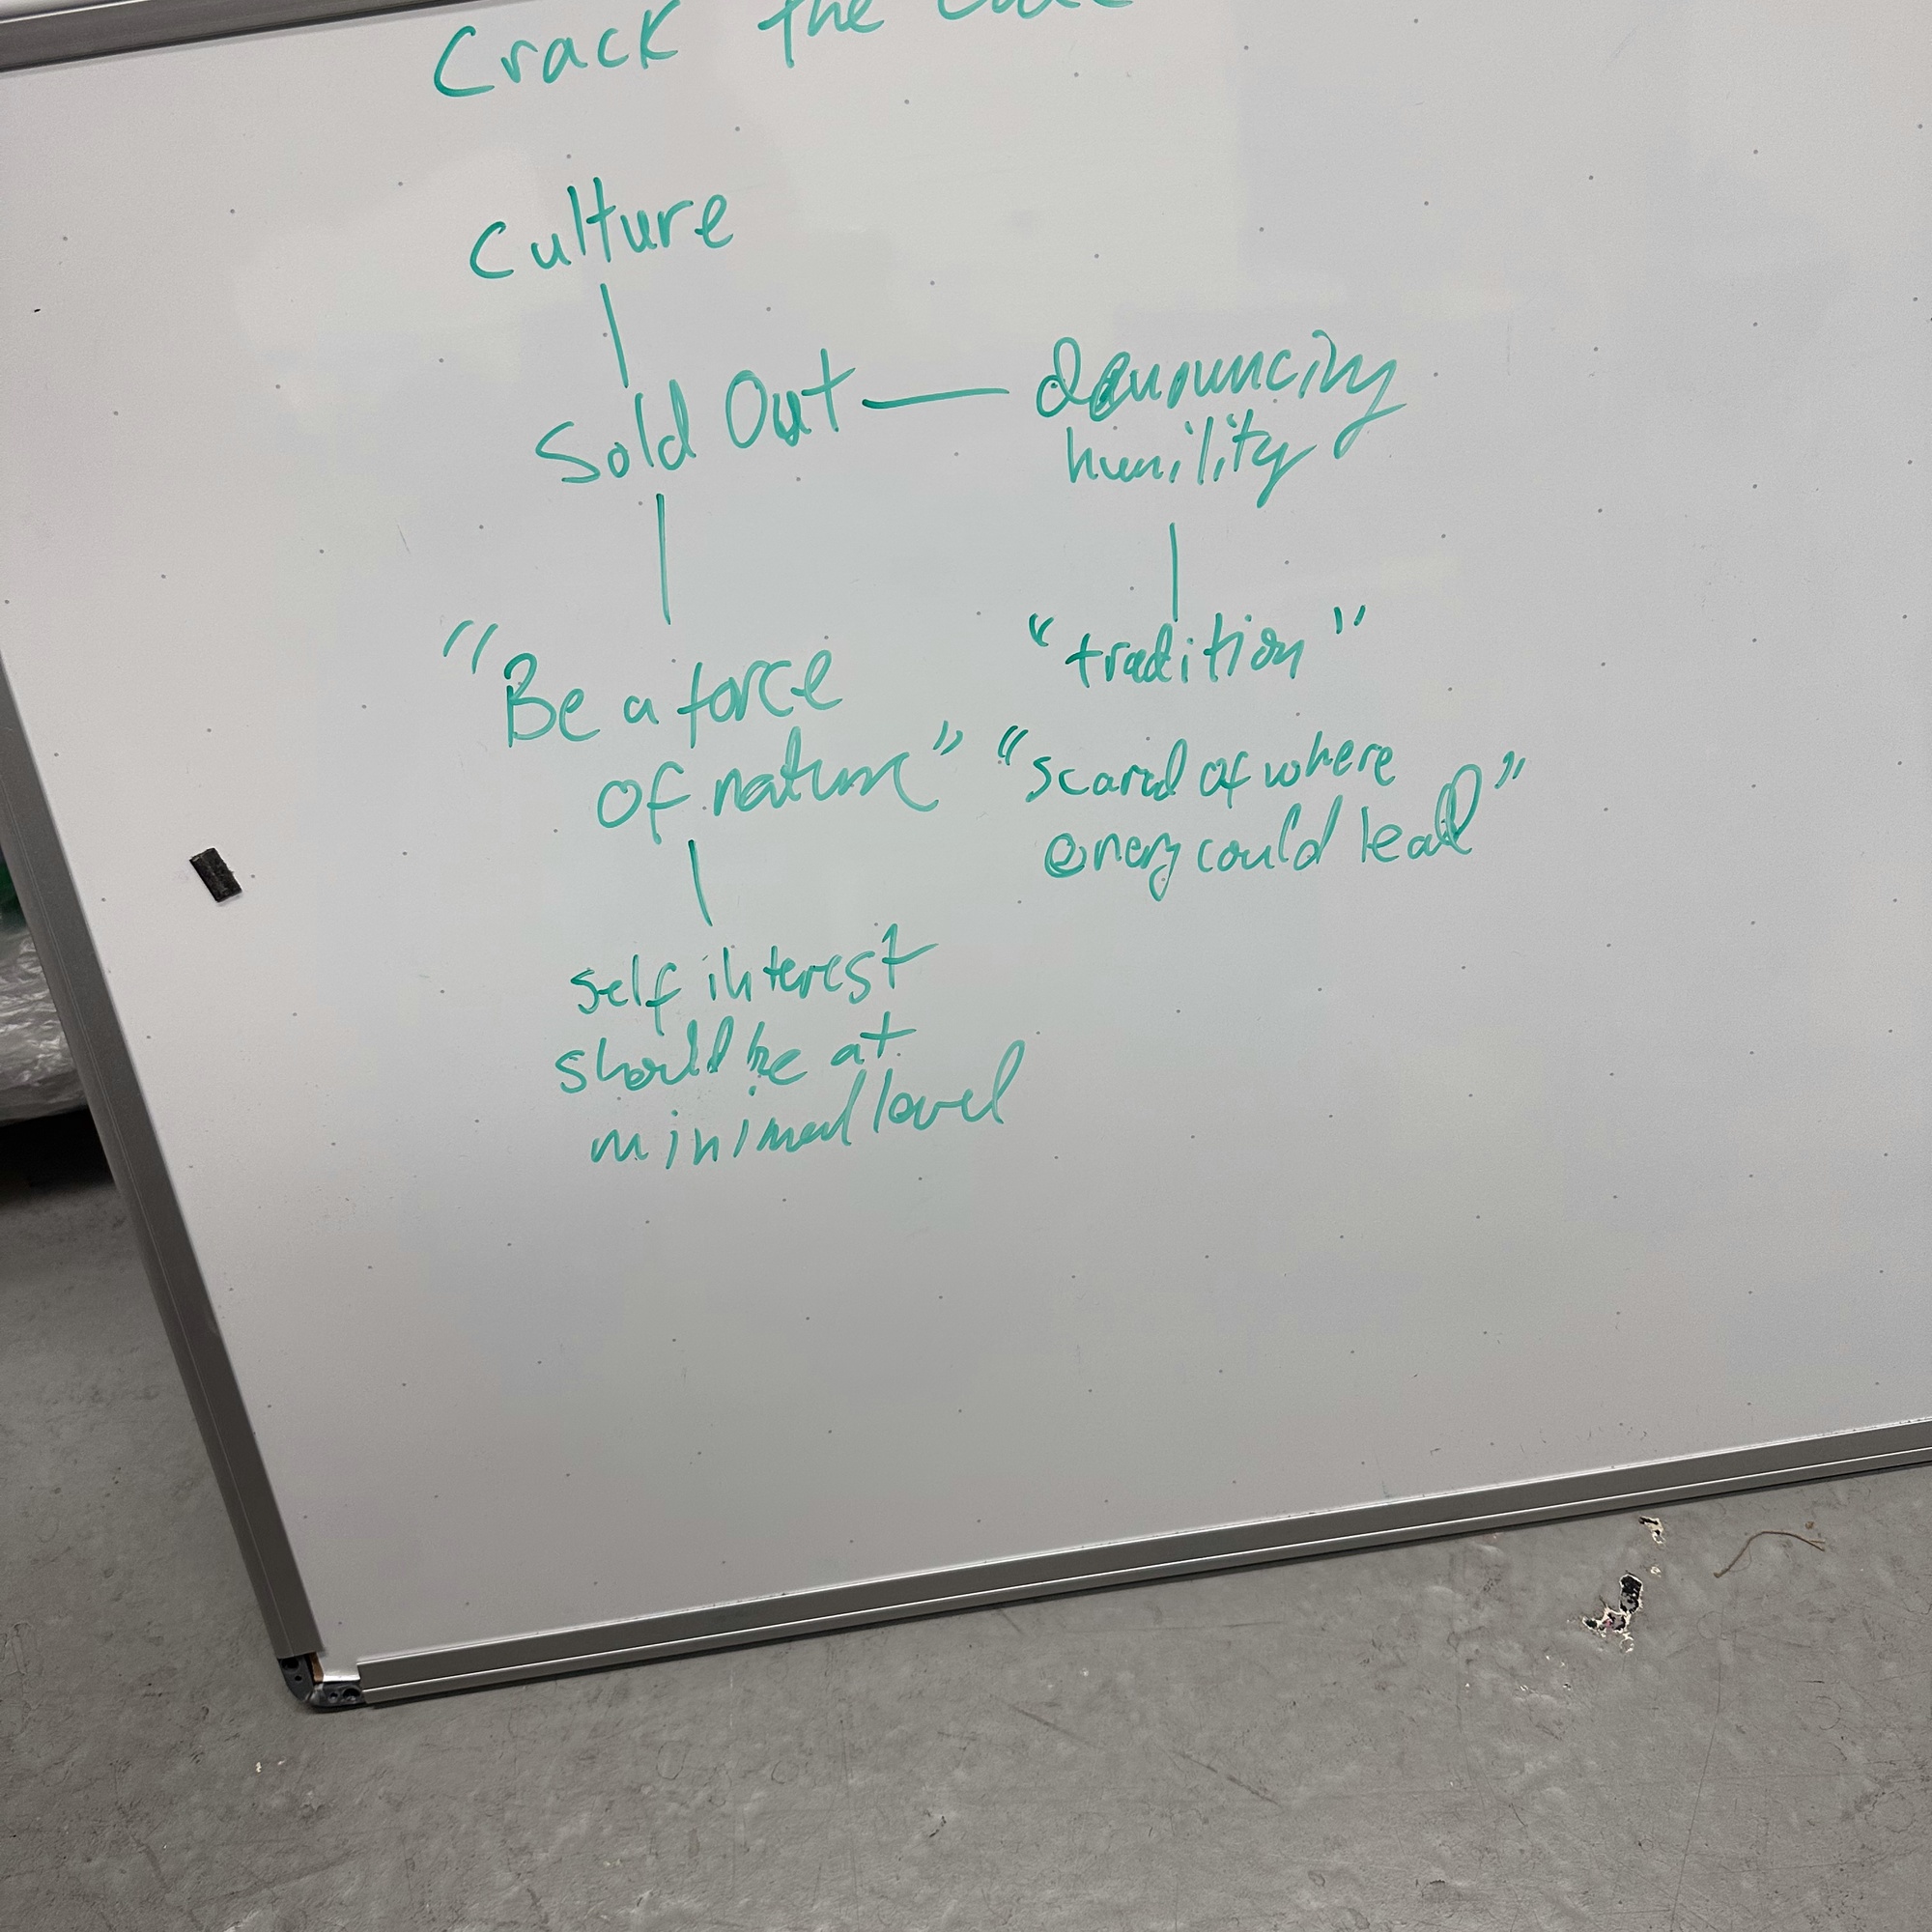 Crack the Code
Culture
Sold Out — denouncing
humility
"Be a force
of nature"
"tradition"
"scared of where
energy could lead"
self interest
should be at
minimal level